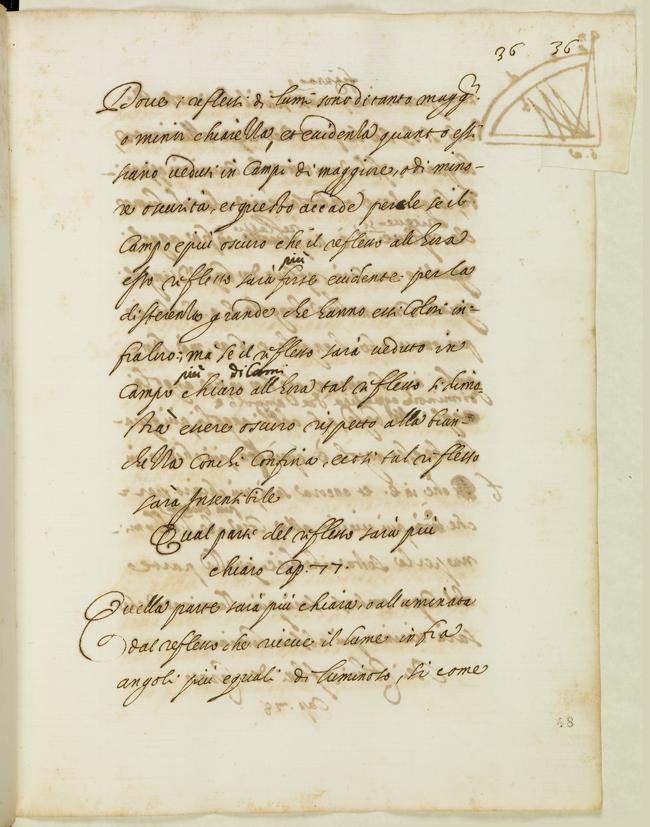 36 36
Dove i reflessi di lumi sono di tanto magg.r
o minor chiarezza, et evidenza quanto essi
siano veduti in Campi di maggiore, o di mino-
re oscurità, et questo accade perche se il
Campo e più oscuro che il reflesso all'hora
esso reflesso sarà più forte evidente per la
differentia grande che hanno essi Colori in-
fraloro; mà se il reflesso sarà veduto in
Campo più chiaro di lumi all'hora tal reflesso si dimo
strà essere oscuro rispetto alla bian-
chezza con chi Confina, e cosi tal reflesso
sarà Insensibile
Qual parte del reflesso sarà più
chiaro Cap. 77.
Quella parte sarà più chiara, o alluminata
dal reflesso che riceve il lume infra
angoli più eguali di luminoso, si come
48